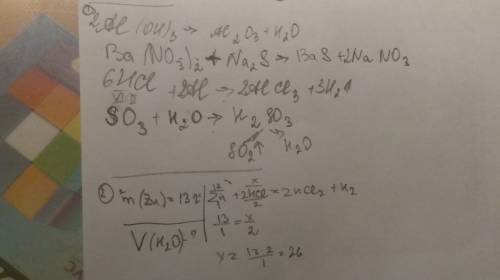 ① 2Al(OH)₃ → Al₂O₃ + H₂O
Ba(NO₃)₂ + Na₂S → BaS + 2NaNO₃
6HCl + 2Al → 2AlCl₃ + 3H₂↑
SO₃ + H₂O → H₂SO₃
SO₂↑ H₂O
② m(Zn) = 13г | 13 Zn / 1 + x 2HCl / 2 = ZnCl₂ + H₂
V(H₂O) - ? | 13/1 = x/2
x = 13·2/1 = 26